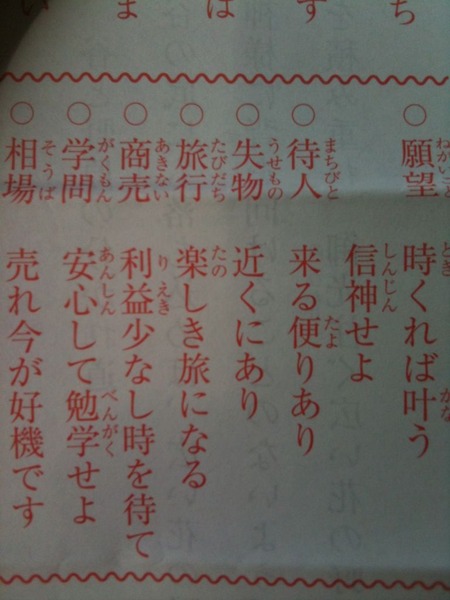 ち
す
は
ま
い
○願望 時くれば叶う
信神せよ
○待人 来る便りあり
○失物 近くにあり
○旅行 楽しき旅になる
○商売 利益少なし時を待て
○学問 安心して勉学せよ
○相場 売れ今が好機です